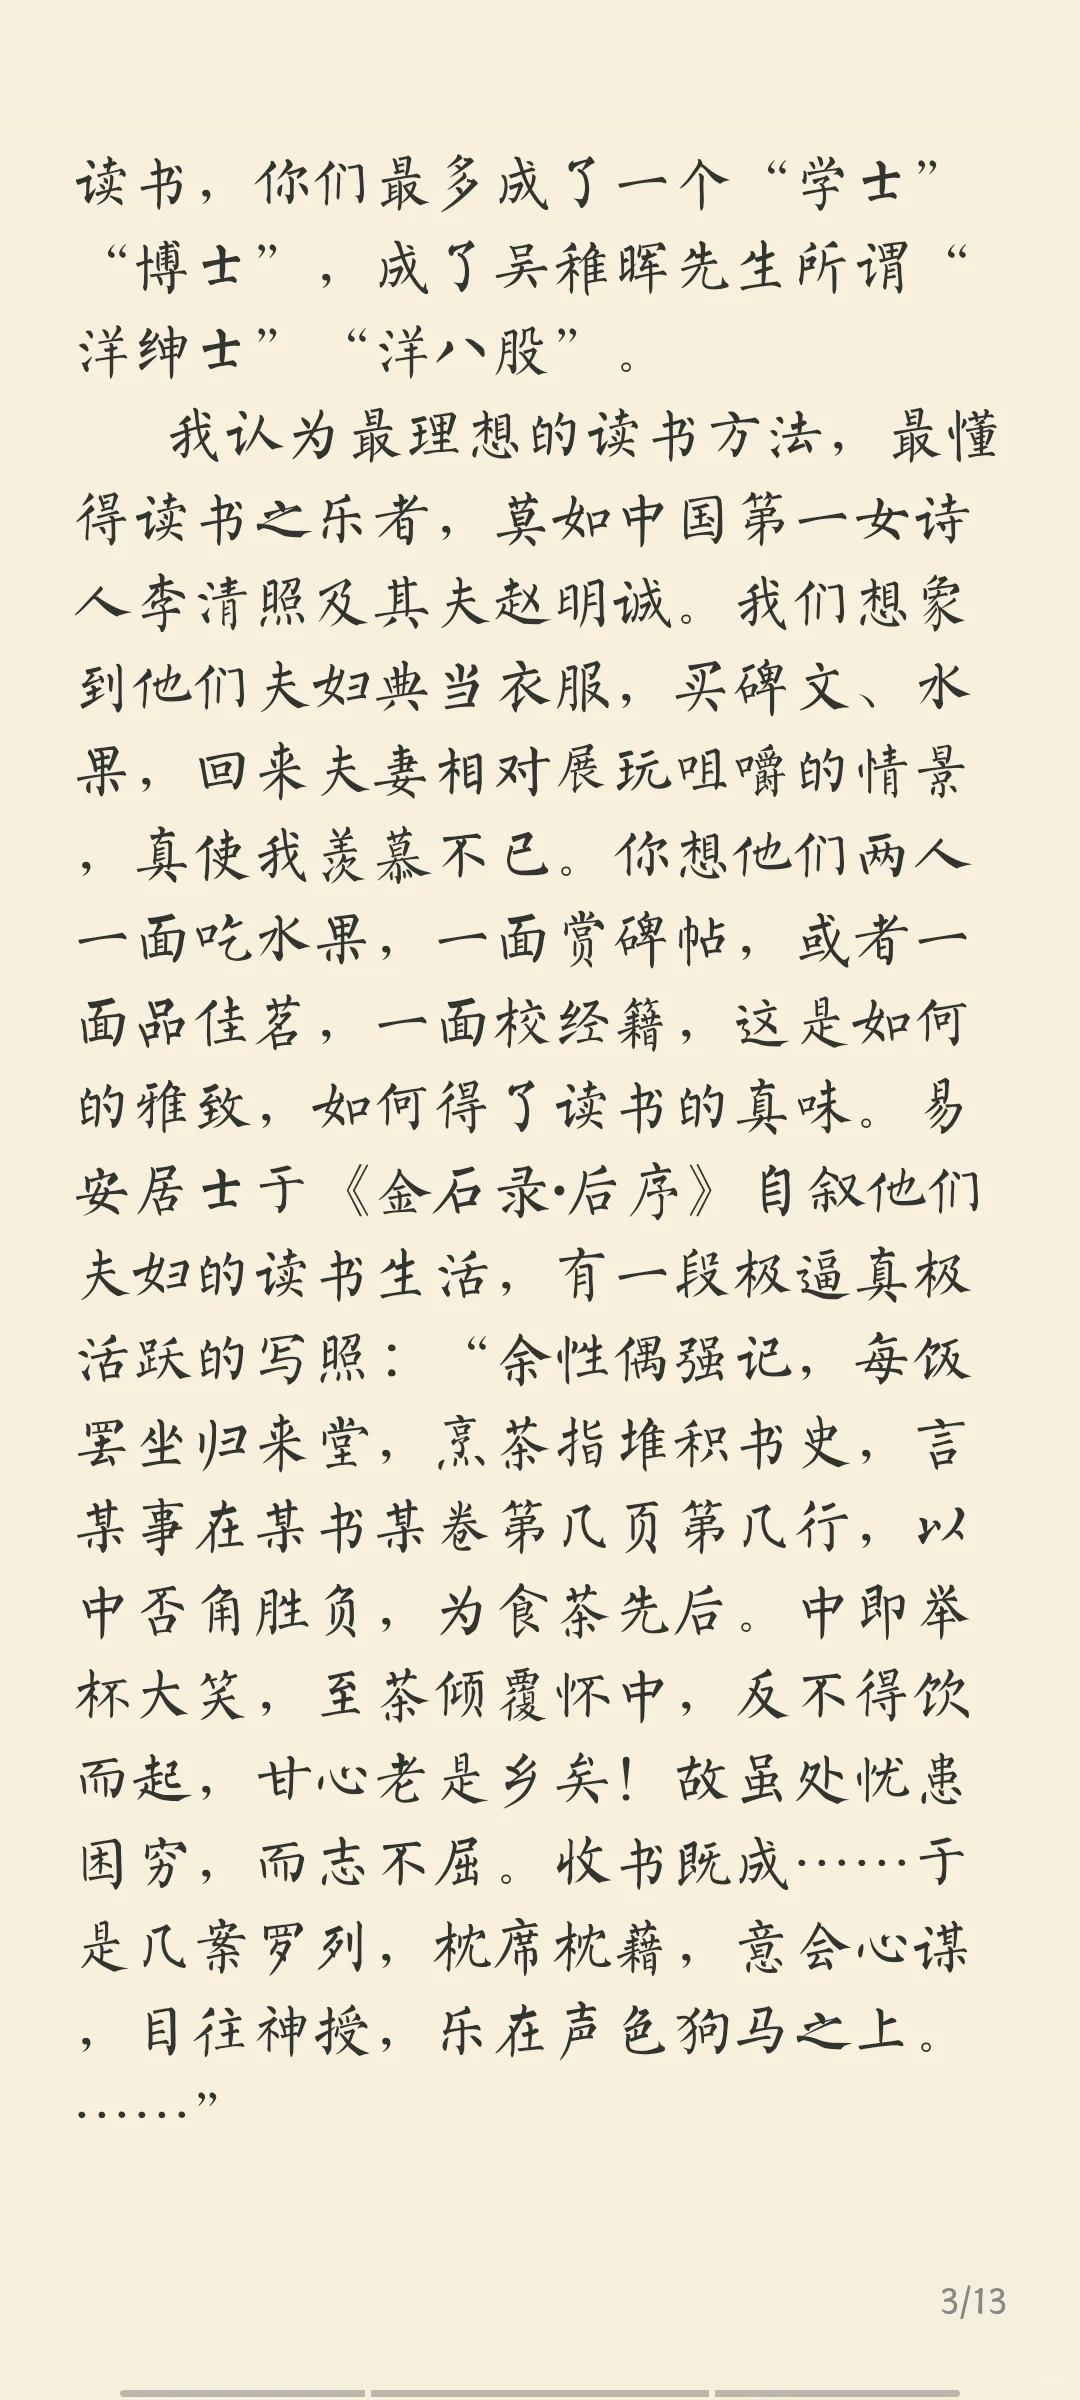 读书，你们最多成了一个“学士”
“博士”，成了吴稚晖先生所谓“
洋绅士”“洋八股”。
我认为最理想的读书方法，最懂
得读书之乐者，莫如中国第一女诗
人李清照及其夫赵明诚。我们想象
到他们夫妇典当衣服，买碑文、水
果，回来夫妻相对展玩咀嚼的情景
，真使我羡慕不已。你想他们两人
一面吃水果，一面赏碑帖，或者一
面品佳茗，一面校经籍，这是如何
的雅致，如何得了读书的真味。易
安居士于《金石录·后序》自叙他们
夫妇的读书生活，有一段极逼真极
活跃的写照：“余性偶强记，每饭
罢坐归来堂，烹茶指堆积书史，言
某事在某书某卷第几页第几行，以
中否角胜负，为食茶先后。中即举
杯大笑，至茶倾覆怀中，反不得饮
而起，甘心老是乡矣！故虽处忧患
困穷，而志不屈。收书既成……于
是几案罗列，枕席枕藉，意会心谋
，目往神授，乐在声色狗马之上。
……”
3/13